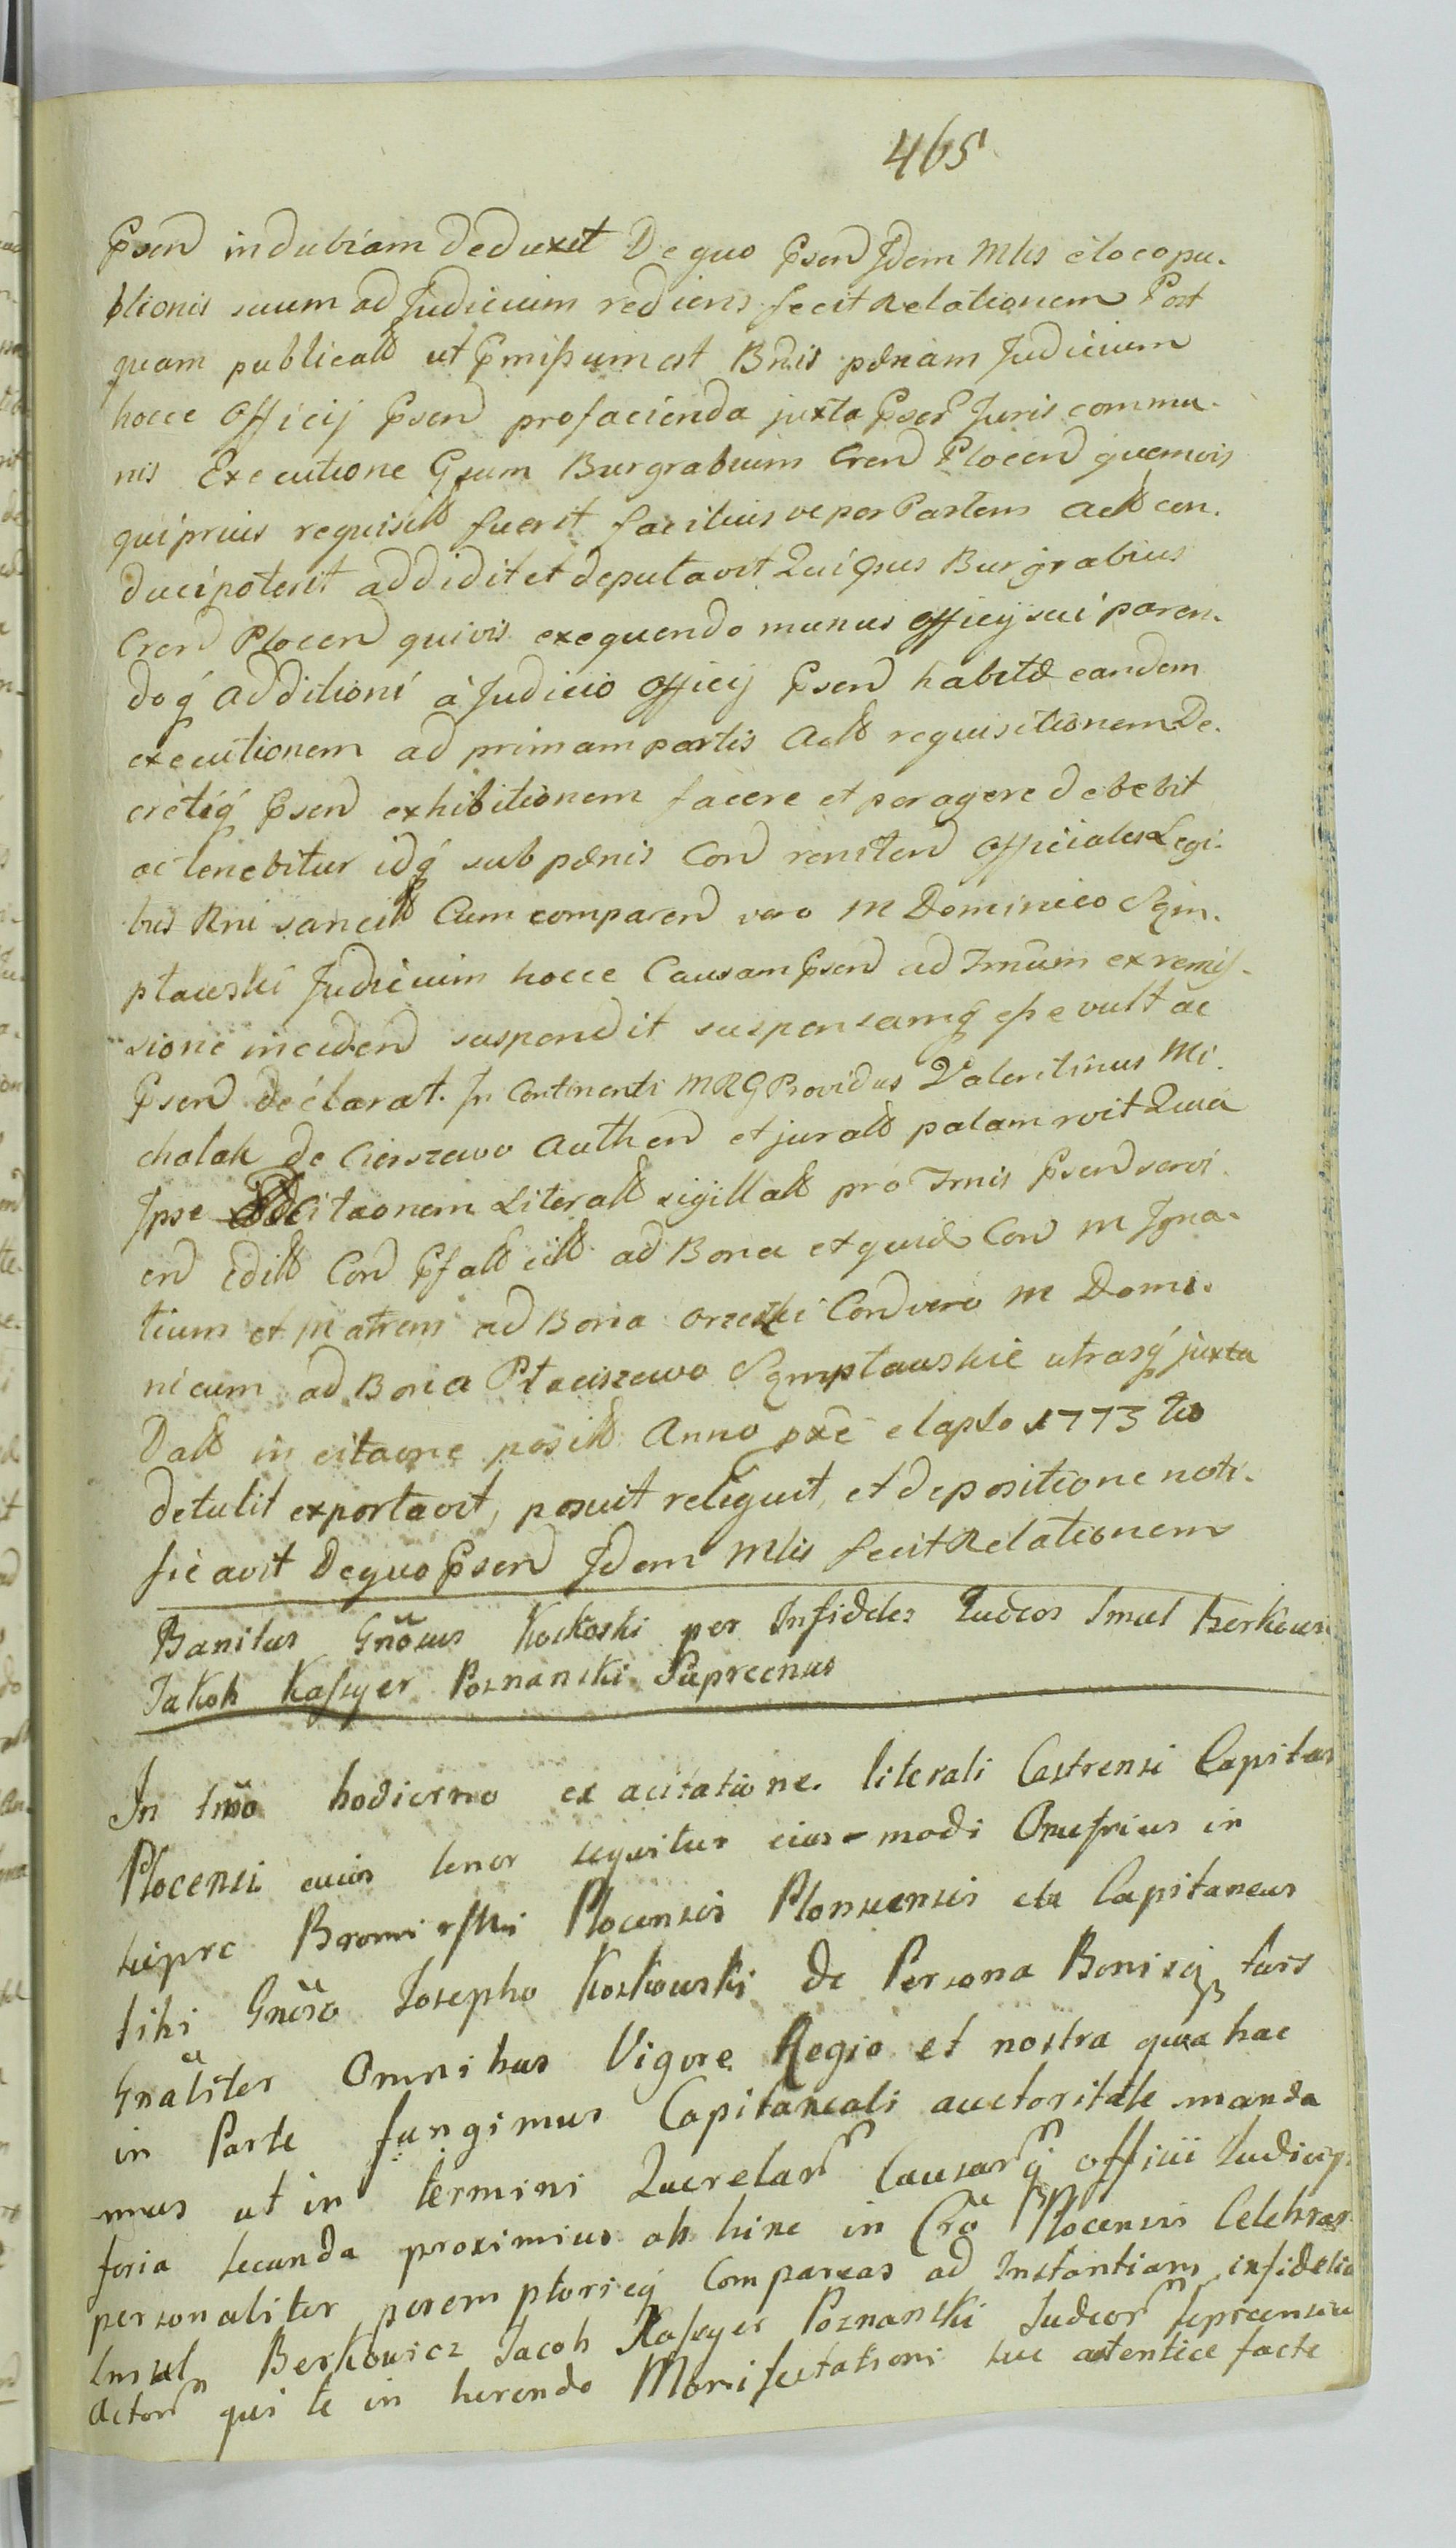 465
Psen indubiam deduxit De quo Psen Idem Mlis e loco pu-
blionis suum ad Judicium rediens fecit Relationem Post
quam publicatt ut Pmissum est Bnis pœnam Judicium
hocce Officij Psen pro facienda juxta Pser Juris commu-
nis Executione Gsum Burgrabium Cren Plocen quemvis
qui prius requisitt fuerit facilius ve per Partem actt con-
duci poterit addidit et deputavit Qui Gsus Burgrabius
Cren Plocen quivis exequendo munus officij sui paren-
doq additioni à Judicio officij Psen habitæ eandem
executionem ad primam partis actt requisitionem De-
cretiq Psen exhibitionem facere et peragere debebit
ac tenebitur idq sub pœnis Con reniten officiales Legi-
bus Rni sancitt Cum comparen vero M Dominico Sęm-
pławski Judicium hocce Causam Psen ad Trnum ex remis-
sione inciden suspendit suspensamq esse vult ac
Psen declarat. In Continenti MRG Providus Valentinus Mi-
chalak de Cierszewo Authen et juratt palam rcit Quia
Ipse citaonem Literatt sigillatt pro Trnis Psen servi-
en editt Con Psatt citt ad Bona et quid Con M Igna-
tium et Matrem ad Bona Orzeski Con vero M Domi-
nicum ad Bona Ptaciszewo Sęmpławskie utrasq juxta
Datt in citaone positt Anno pxe elapso 1773 tio
detulit exportavit, posuit reliquit, et depositione noti-
ficavit De quo Psen Idem Mlis fecit Relationem
Banitus Gnosus Koskoski per Infideles Judeos Smul Berkowi
Jakob Kassyer Poznanski Suprcensus
In tmo hodierno ex acitatione literali Castrensi Capitan
Plocensi cuius tenor sequitur eius-modi Onufrius in
supre Bromirski Plocensis Plonscensis etc Capitaneus
tibi Gnoso Josepho Koskowski de Persona Bonisq tuis
Gnaliter Omnibus Vigore Regio et nostra qua hac
in Parte fungimur Capitaneali auctoritate manda
mus ut in termini Querelar Causarq officii Judicij
feria secunda proximius ab hinc in Cro Plocensis Celebran
personaliter peremptorieq Compareas ad Instantiam infideliu
Smul Berkowicz Jacob Kassyer Poznanski Judeor suprcensu
Actor qui te in herendo Manifestationi sue autentice facte